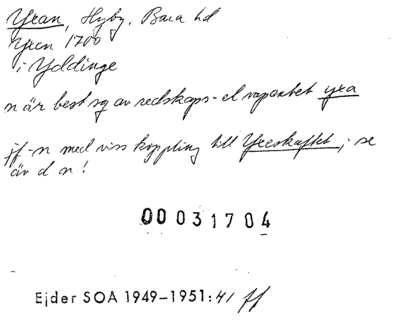 Yxan, Hyby, Bara hd
Yxen 1700
i Yddinge
n är best sg av redskaps- el vapenbet yxa
jf -n med viss koppling till Yxeskaftet; se
äv d n!
00031704
Ejder SOA 1949-1951:41 ff